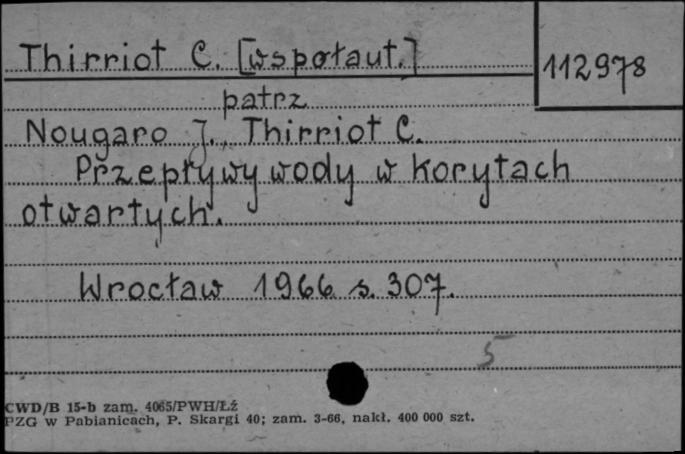 Thirriot C. [wspołaut.]
112978
patrz
Nougaro J., Thirriot C.
Przepływy wody w korytach
otwartych.
Wrocław 1966 s. 307.
5
CWD/B 15-b zam. 4065/PWH/Łź
PZG w Pabianicach, P. Skargi 40; zam. 3-66, nakł. 400 000 szt.